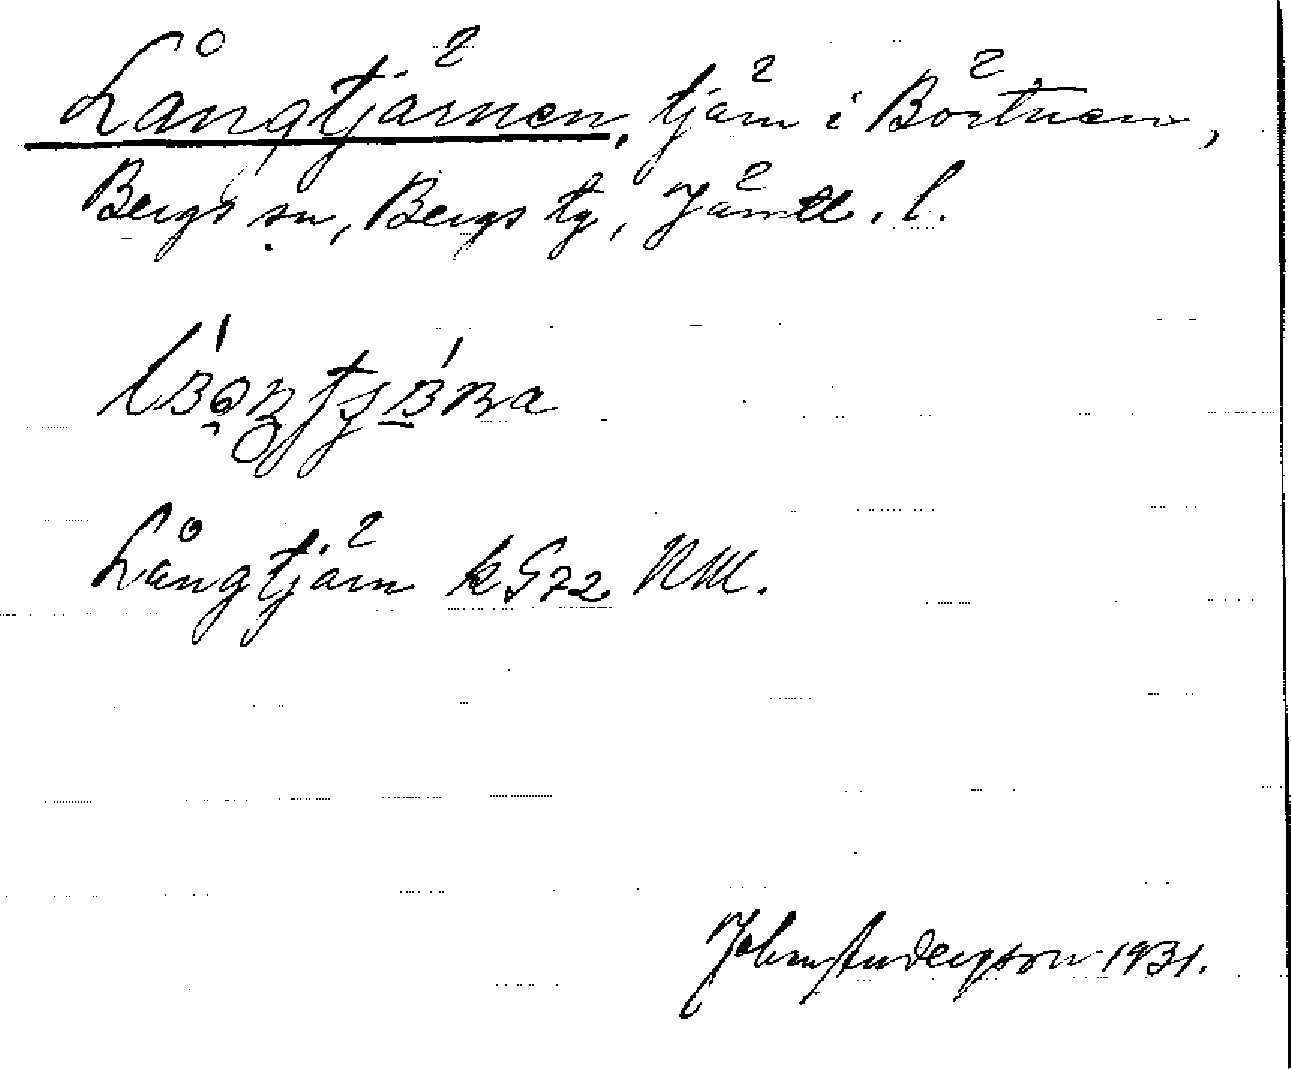 Långtjärnen, tjärn i Börtnen,
Bergs sn, Bergs tg, Jämtl. l.
Långtjärn k G 72 NM.
John Andersson 1931.